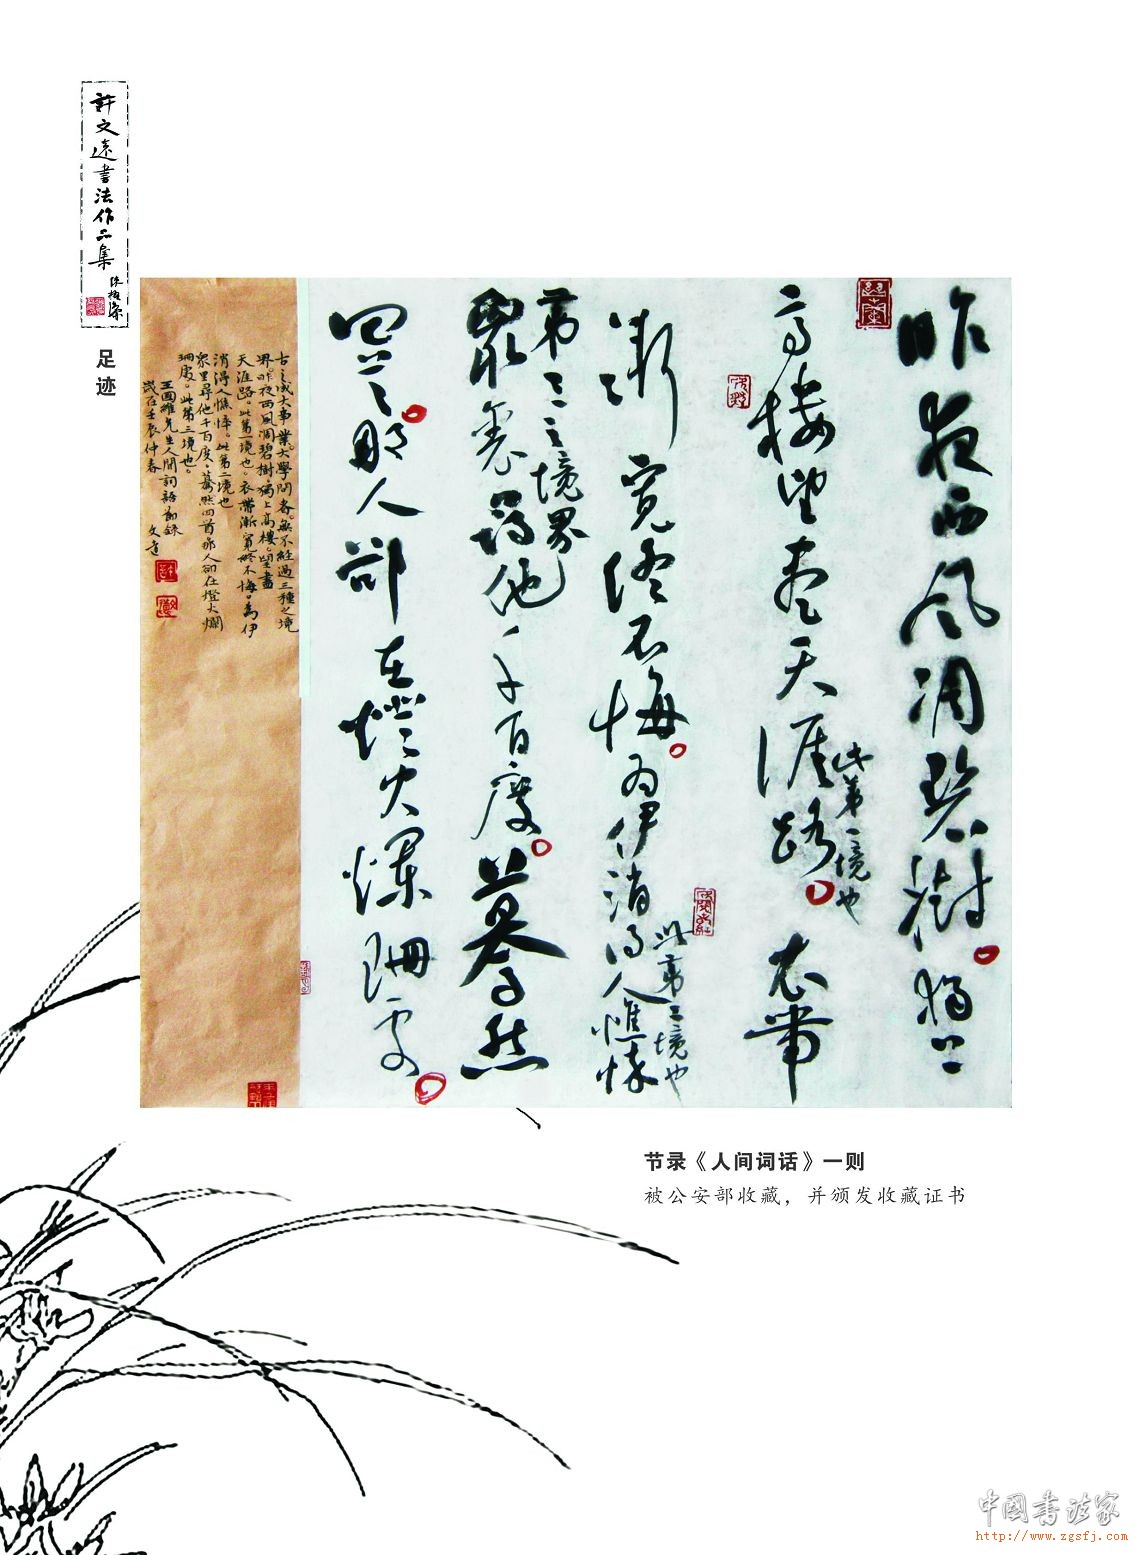 許文遠書法作品集
足迹
昨夜西風凋碧樹獨上
高樓望盡天涯路
此第一境也
衣帶
漸寬終不悔為伊消得人憔悴
此第二境也
第三之境界
眾里尋他千百度驀然
回首那人卻在燈火闌珊處
古之成大事業大學問者無不經過三種之境
界昨夜西風凋碧樹獨上高樓望盡
天涯路此第一境也衣帶漸寬終不悔為伊
消得人憔悴此第二境也
眾里尋他千百度驀然回首那人卻在燈火闌
珊處此第三境也
王國維先生人間詞話節錄
歲在壬辰仲春 文遠
节录《人间词话》一则
被公安部收藏，并颁发收藏证书
中國書法家
http://www.zgsfj.com